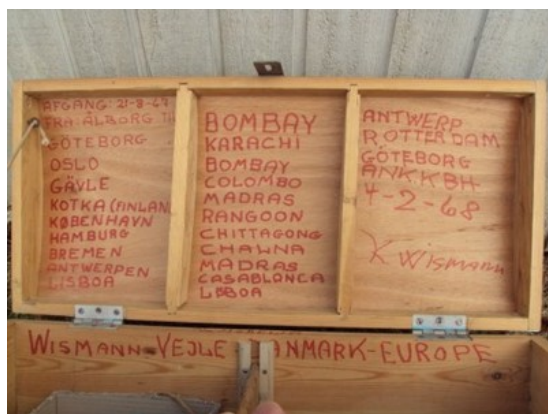 AFGANG: 21-8-67
FRA: ÅLBORG TIL
GÖTEBORG
OSLO
GÄVLE
KOTKA (FINLAN
KØBENHAVN
HAMBURG
BREMEN
ANTWERPEN
LISBOA
BOMBAY
KARACHI
BOMBAY
COLOMBO
MADRAS
RANGOON
CHITTAGONG
CHAWNA
MADRAS
CASABLANCA
LISBOA
ANTWERP
ROTTERDAM
GÖTEBORG
ANK. KBH
4-2-68
K Wismann
WISMANN-VEJLE NMARK-EUROPE